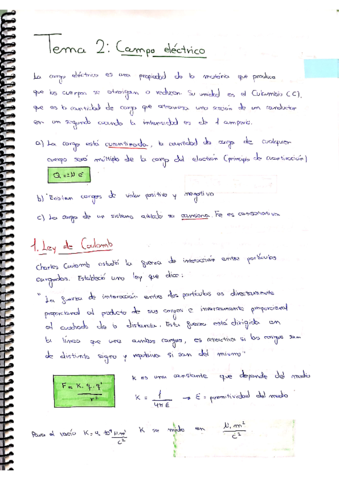 Tema 2: Campo eléctrico
La carga eléctrica es una propiedad de la materia que produce
que los cuerpos se atraigan o repelan. Su unidad es el Culombio (C),
que es la cantidad de carga que atraviesa una sección de un conductor
en un segundo cuando la intensidad es de 1 amperio.
a) La carga está cuantizada, la cantidad de carga de cualquier
cuerpo será múltiplo de la carga del electrón (principio de cuantización)
Q = N e
b) Existen cargas de valor positivo y negativo
c) La carga de un sistema aislado se conserva.
1. Ley de Coulomb
Charles Coulomb estudió la fuerza de interacción entre partículas
cargadas. Estableció una ley que dice:
"La fuerza de interacción entre dos partículas es directamente
proporcional al producto de sus cargas e inversamente proporcional
al cuadrado de la distancia. Esta fuerza está dirigida en
la línea que une ambas cargas, es atractiva si las cargas son
de distinto signo y repulsiva si son del mismo"
F = K. q. q' / r²
K es una constante que depende del medio
K = 1 / 4πε → ε = permitividad del medio
Para el vacío K = 9. 10⁹ N.m² / C² K se mide en N. m² / C²